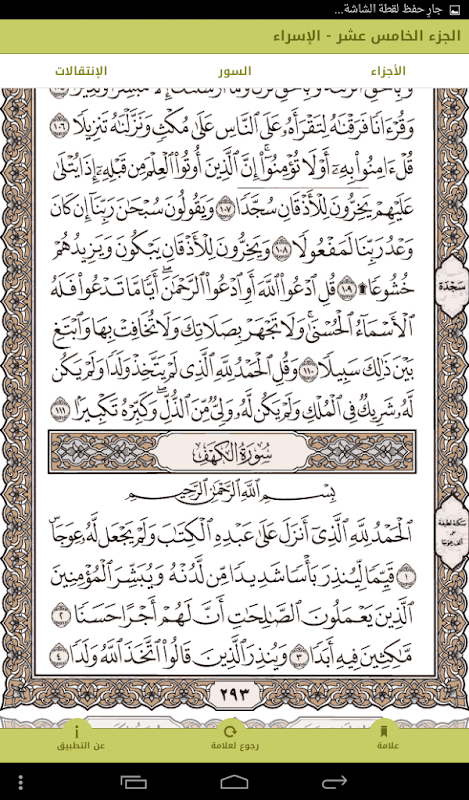 جارِ حفظ لقطة الشاشة...
الجزء الخامس عشر - الإسراء
الأجزاء
السور
الإنتقالات
وَقُرْءَانًا فَرَقْنَٰهُ لِتَقْرَأَهُۥ عَلَى ٱلنَّاسِ عَلَىٰ مُكْثٍ وَنَزَّلْنَٰهُ تَنزِيلًا ١٠٦
قُلْ ءَامِنُوا۟ بِهِۦٓ أَوْ لَا تُؤْمِنُوٓا۟ إِنَّ ٱلَّذِينَ أُوتُوا۟ ٱلْعِلْمَ مِن قَبْلِهِۦٓ إِذَا يُتْلَىٰ
عَلَيْهِمْ يَخِرُّونَ لِلْأَذْقَانِ سُجَّدًا ١٠٧ وَيَقُولُونَ سُبْحَٰنَ رَبِّنَآ إِن كَانَ
وَعْدُ رَبِّنَا لَمَفْعُولًا ١٠٨ وَيَخِرُّونَ لِلْأَذْقَانِ يَبْكُونَ وَيَزِيدُهُمْ
خُشُوعًا ۩ ١٠٩ قُلِ ٱدْعُوا۟ ٱللَّهَ أَوِ ٱدْعُوا۟ ٱلرَّحْمَٰنَ أَيًّا مَّا تَدْعُوا۟ فَلَهُ
سَجْدَة
ٱلْأَسْمَآءُ ٱلْحُسْنَىٰ وَلَا تَجْهَرْ بِصَلَاتِكَ وَلَا تُخَافِتْ بِهَا وَٱبْتَغِ
بَيْنَ ذَٰلِكَ سَبِيلًا ١١٠ وَقُلِ ٱلْحَمْدُ لِلَّهِ ٱلَّذِى لَمْ يَتَّخِذْ وَلَدًا وَلَمْ يَكُن
لَّهُۥ شَرِيكٌ فِى ٱلْمُلْكِ وَلَمْ يَكُن لَّهُۥ وَلِىٌّ مِّنَ ٱلذُّلِّ وَكَبِّرْهُ تَكْبِيرًۢا ١١١
سُورَةُ الكَهْفِ
بِسْمِ ٱللَّهِ ٱلرَّحْمَٰنِ ٱلرَّحِيمِ
ٱلْحَمْدُ لِلَّهِ ٱلَّذِىٓ أَنزَلَ عَلَىٰ عَبْدِهِ ٱلْكِتَٰبَ وَلَمْ يَجْعَل لَّهُۥ عِوَجَا
سكتة لطيفة
على
ألف عِوَجَا
١ قَيِّمًا لِّيُنذِرَ بَأْسًا شَدِيدًا مِّن لَّدُنْهُ وَيُبَشِّرَ ٱلْمُؤْمِنِينَ
ٱلَّذِينَ يَعْمَلُونَ ٱلصَّٰلِحَٰتِ أَنَّ لَهُمْ أَجْرًا حَسَنًا ٢
مَّٰكِثِينَ فِيهِ أَبَدًا ٣ وَيُنذِرَ ٱلَّذِينَ قَالُوا۟ ٱتَّخَذَ ٱللَّهُ وَلَدًا ٤
٢٩٣
علامة
رجوع لعلامة
عن التطبيق